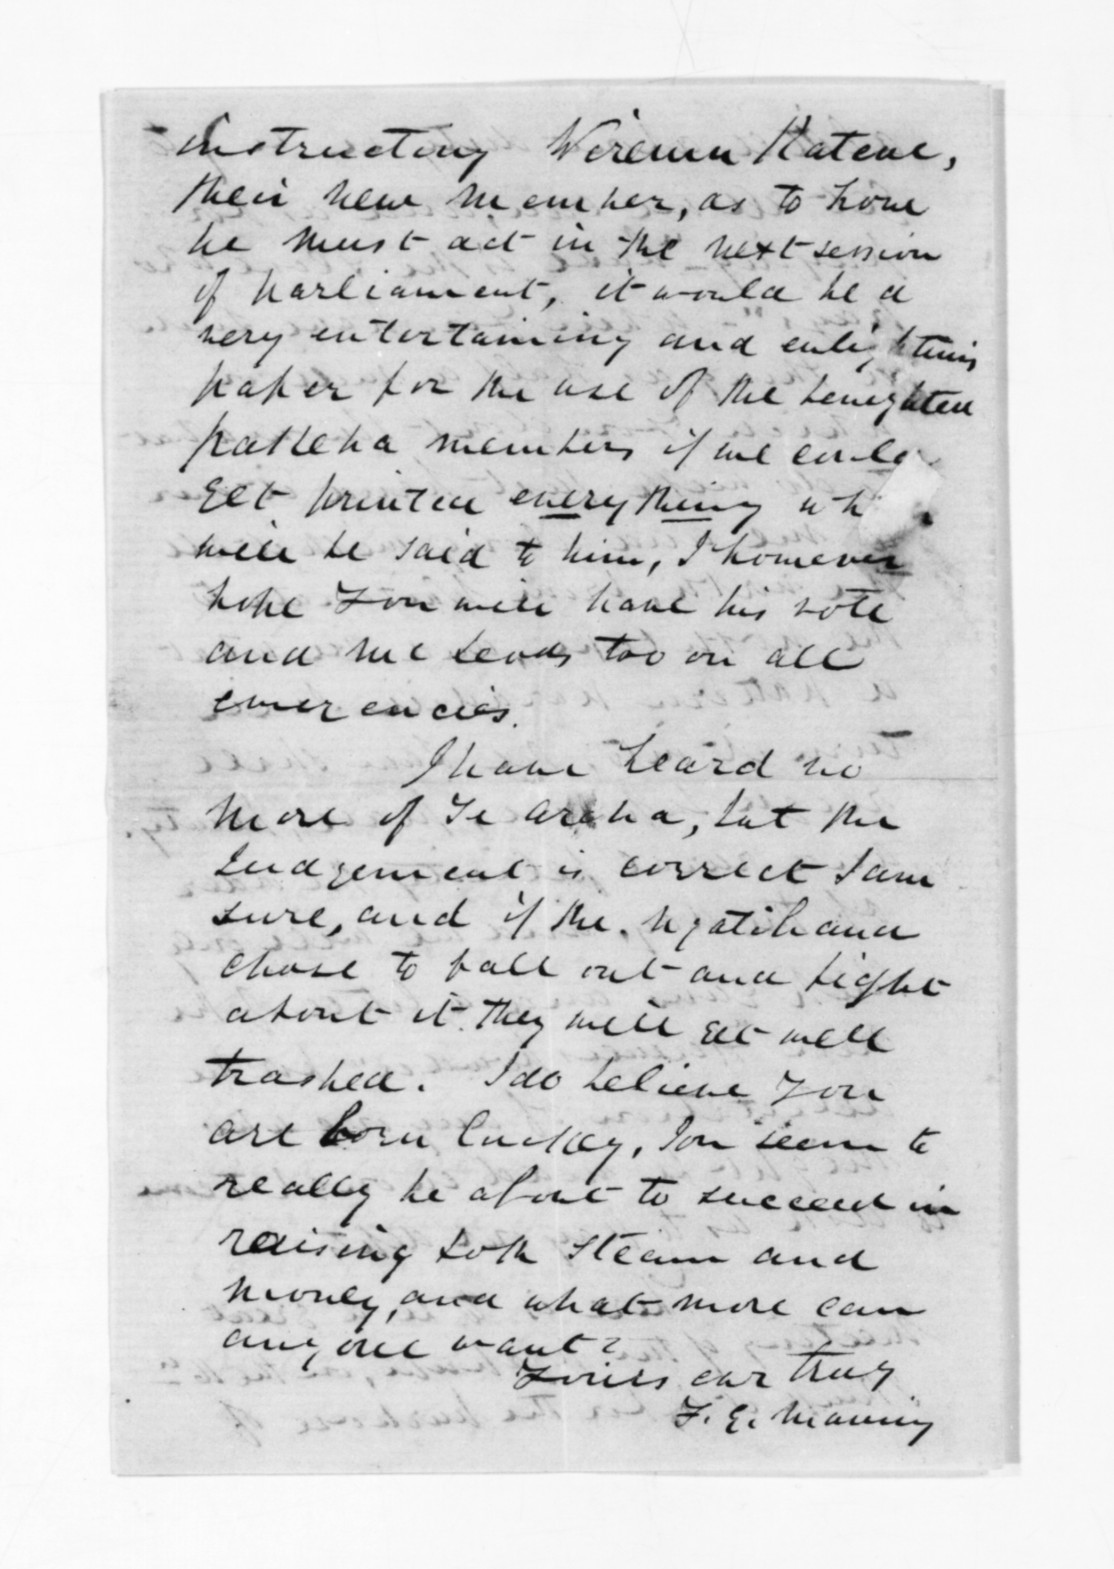 instructing Wiremu Katene,
their new member, as to how
he must act in the next session
of parliament, it would be a
very entertaining and enlightening
paper for the use of the benighted
pakeha members if we could
get printed everything which
will be said to him, I however
hope you will have his vote
and his too on all
emergencies.
I have heard no
more of Te Aroha, but the
Judgement is correct I am
sure, and if the Ngatihaua
chose to fall out and fight
about it they will get well
trashed. I do believe you
are born luckey, you seem to
really be about to succeed in
raising both steam and
money, and what more can
anyone want?
Yours ever truly
F. E. Maning